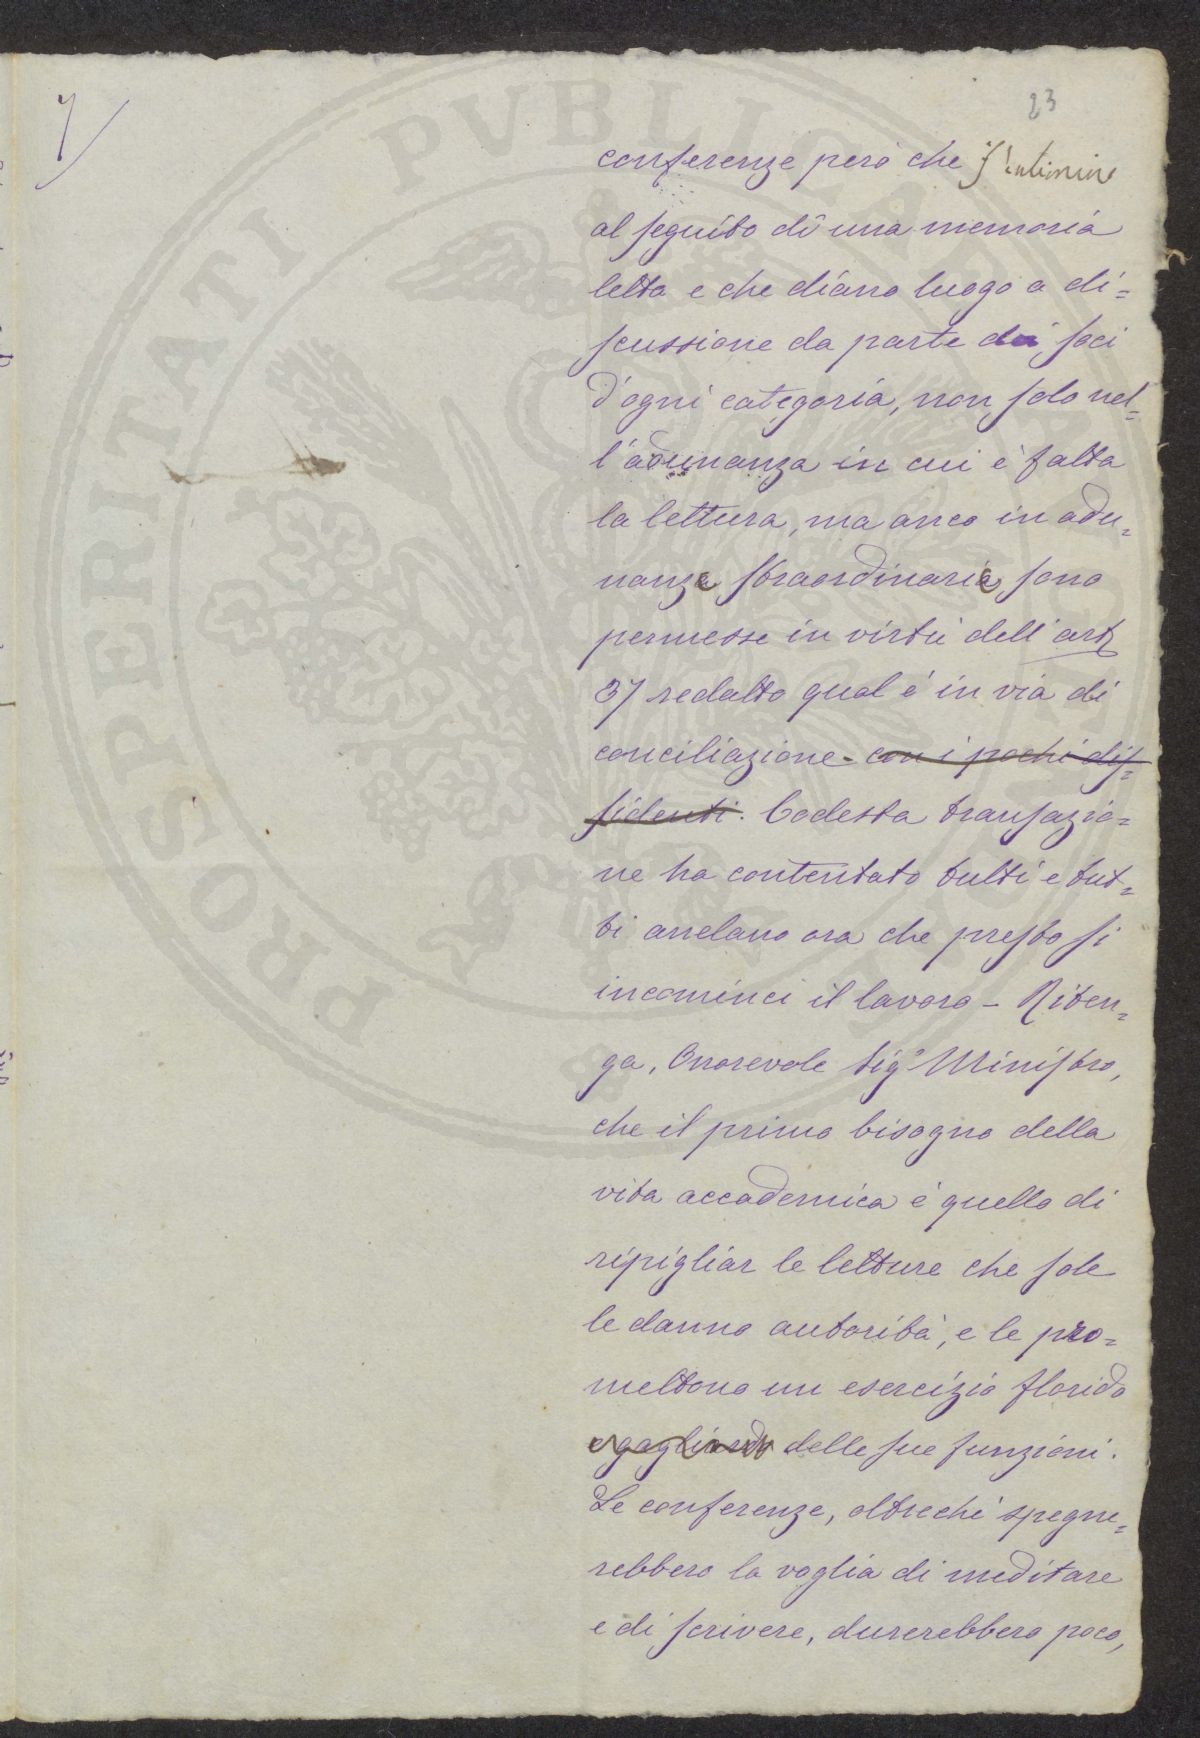 7/
23
conferenze però che s'intimino
al seguito di una memoria
letta e che diano luogo a di=
scussione da parte dei soci
d'ogni categoria, non solo nel=
l'adunanza in cui è fatta
la lettura, ma anco in adu=
nanze straordinarie, sono
permesse in virtù dell'art
37 redatto qual è in via di
conciliazione. con i pochi dis=
sidenti. Codesta transazio=
ne ha contentato tutti e tut=
ti anelano ora che presto si
incominci il lavoro - Riten=
ga, Onorevole Sigr Ministro,
che il primo bisogno della
vita accademica è quello di
ripigliar le letture che sole
le danno autorità, e le pro=
mettono un esercizio florido
e gagliardo delle sue funzioni.
Le conferenze, oltrechè spegne=
rebbero la voglia di meditare
e di scrivere, durerebbero poco,
PROSPERITATI PVBLICAE